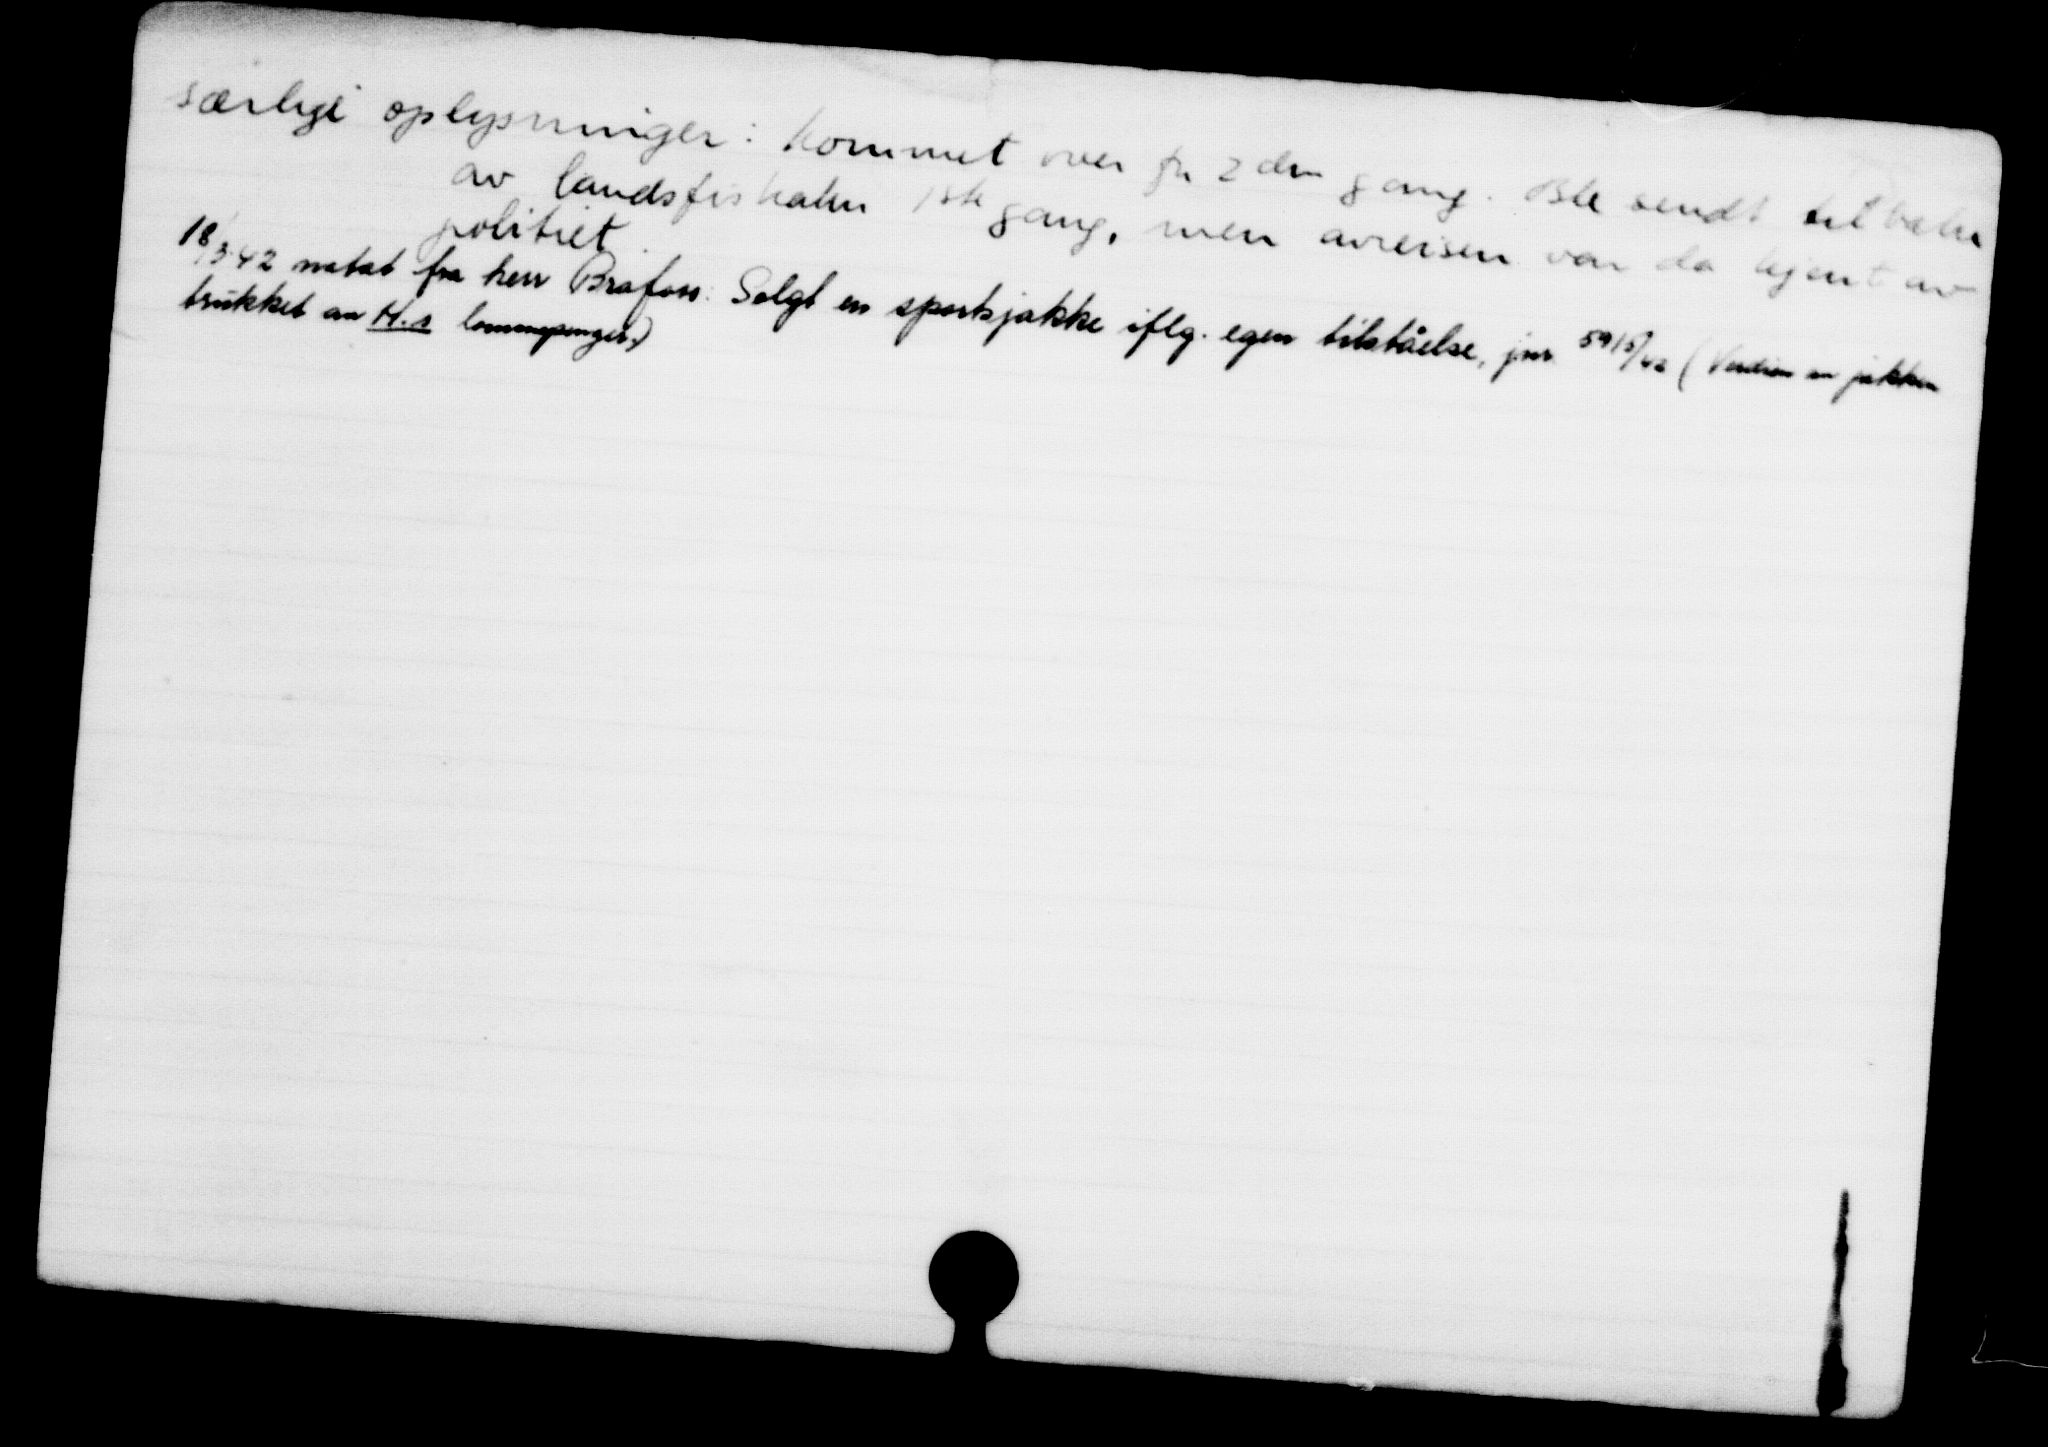 særlige oplysninger: kommet over for 2den gang. Ble sendt tilbake
av landsfiskalen 1ste gang, men avreisen var da kjent av
politiet.
18/3.42 notat fra herr Brafoss: Solgt en sportsjakke iflg. egen tilståelse, jnr. 5915/42 (Verdien av jakken
trukket av H.s lommepenger.)